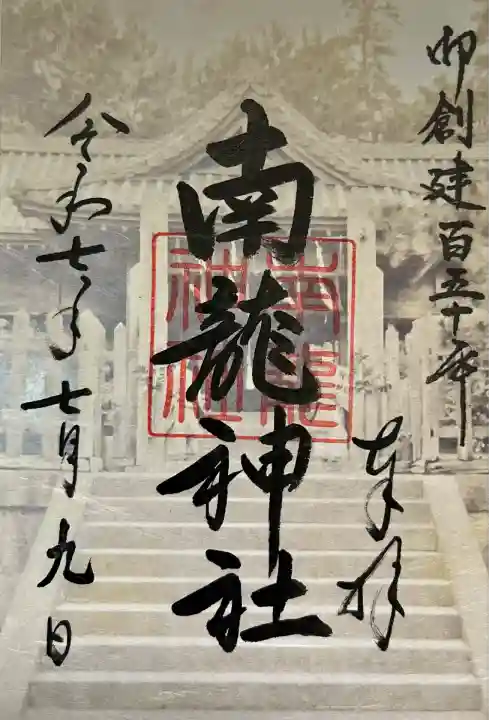 御創建百五十年
奉拝
南龍神社
南龍神社
令和七年七月九日